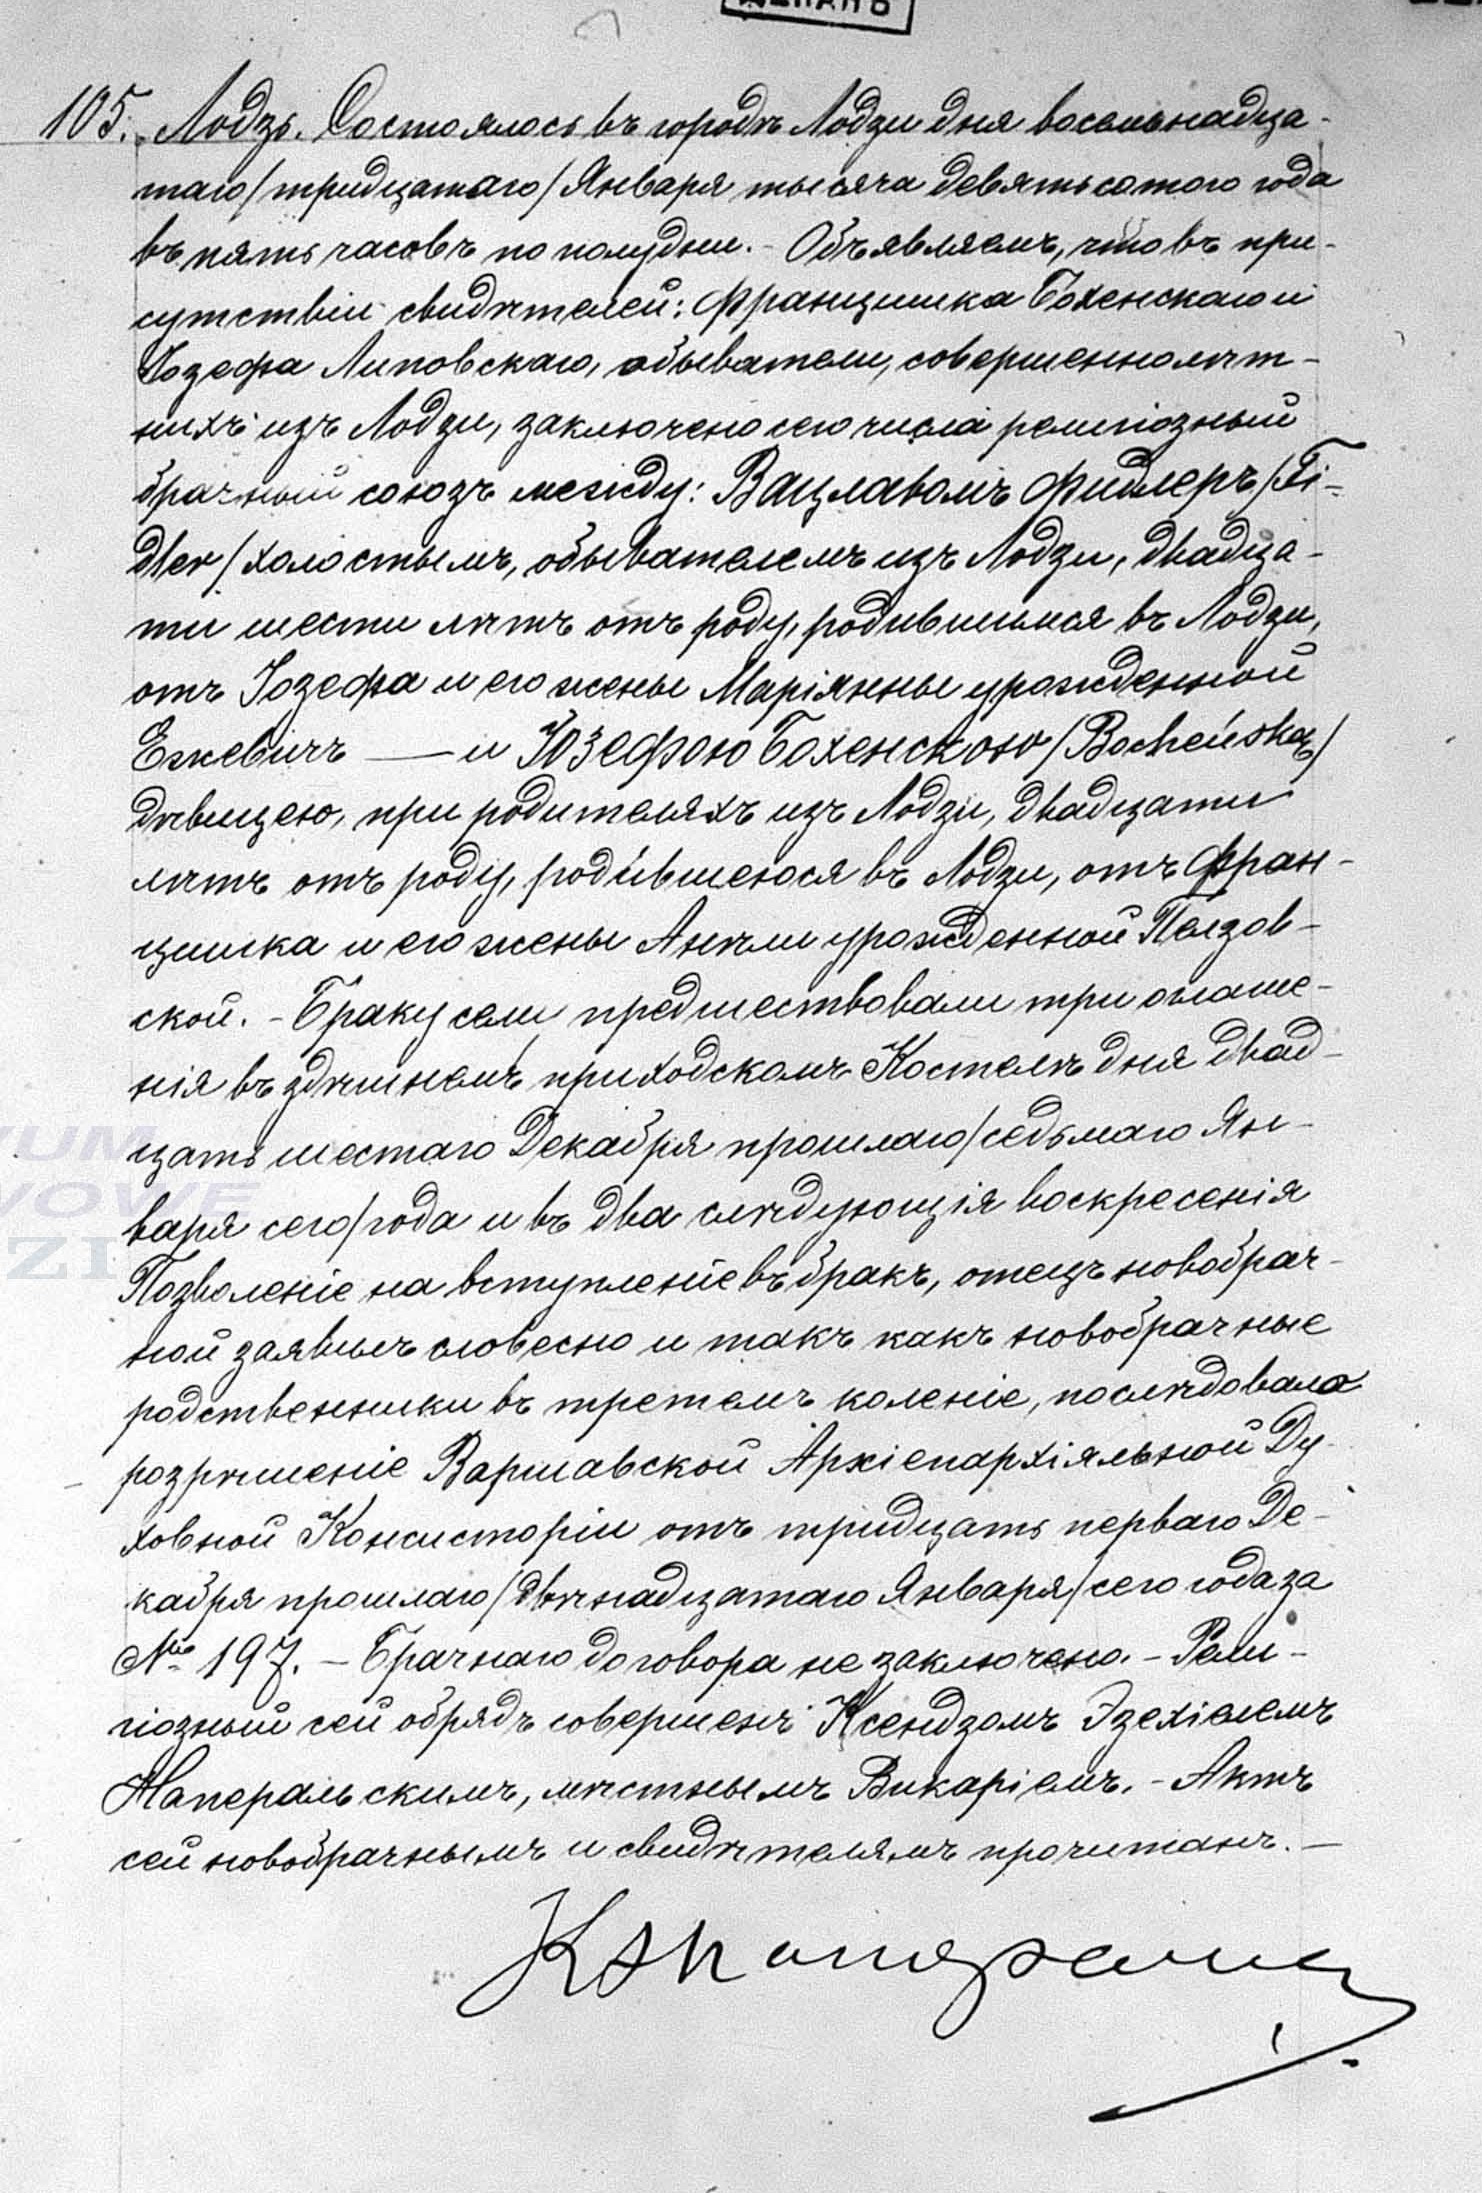 ДЕКАНЪ
105. Лодзь. Состоялось въ городѣ Лодзи дня восемьнадца-
таго/тридцатаго/Января тысяча девятьсотого года
въ пять часовъ по полудни. - Объявляемъ, что въ при-
сутствіи свидѣтелей: Францишка Бохенскаго и
Іозефа Липовскаго, обыватели, совершеннолѣт-
нихъ изъ Лодзи, заключено сего числа религіозный
брачный союзъ между: Вацлавомъ Фидлеръ/Fi-
dler/холостымъ, обывателемъ изъ Лодзи, двадца-
ти шести лѣтъ отъ роду, родившимся въ Лодзи,
отъ Іозефа и его жены Маріянны урожденной
Ежевичъ — и Юзефою Бохенскою/Bocheńska/
дѣвицею, при родителяхъ изъ Лодзи, двадцати
лѣтъ отъ роду, родившеюся въ Лодзи, отъ Фран-
цишка и его жены Анѣли урожденной Пелзов-
ской. - Браку сему предшествовали три оглаше-
нія въ здѣшнемъ приходскомъ Костелѣ дня двад-
цать шестаго Декабря прошлаго/седьмаго Ян-
варя сего/года и въ два слѣдующія воскресенія
Позволеніе на вступленіе въ бракъ, отецъ новобрач-
ной заявилъ словесно и такъ какъ новобрачные
родственники въ третемъ коленіе, послѣдовало
розрѣшеніе Варшавской Архіепархіяльной Ду-
ховной Консисторіи отъ тридцать перваго Де-
кабря прошлаго/двѣнадцатаго Января/сего года за
№ 197. - Брачнаго договора не заключено. - Рели-
гіозный сей обрядъ совершенъ Ксендзомъ Эзехіелемъ
Наперальскимъ, мѣстнымъ Викаріемъ. - Актъ
сей новобрачнымъ и свидѣтелямъ прочитанъ. —